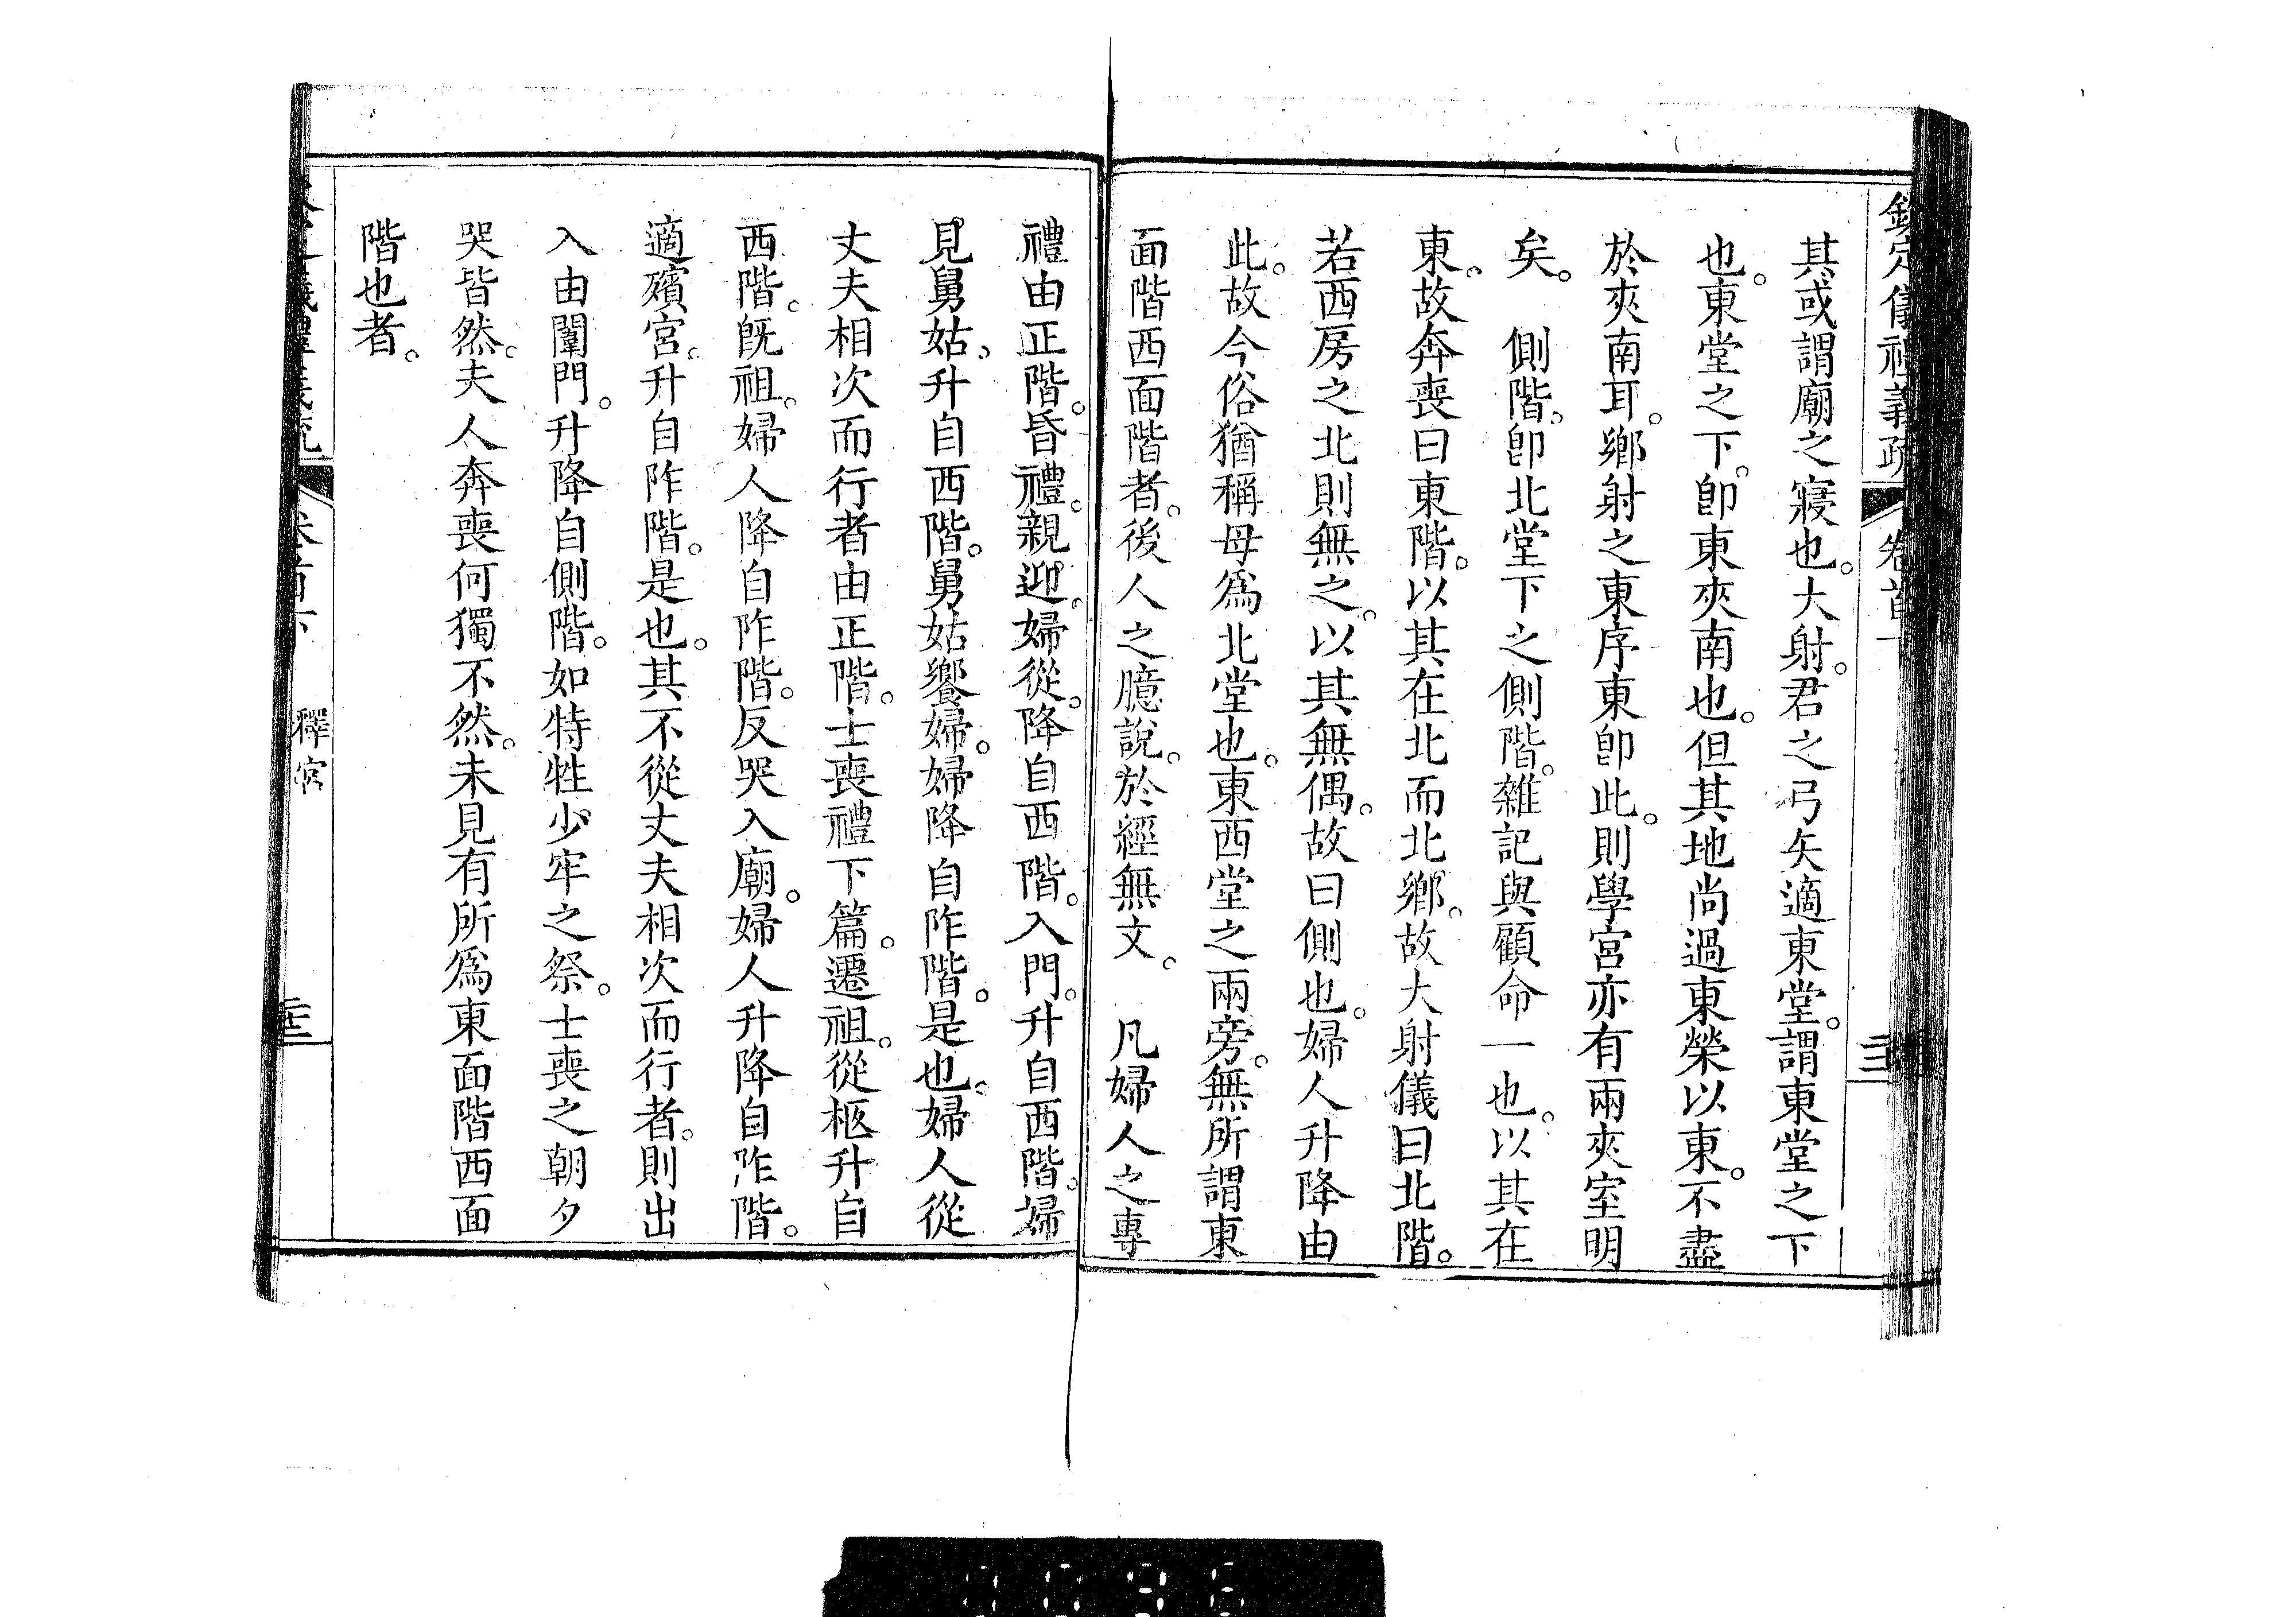 欽定儀禮義疏 卷首下
其或謂廟之寢也。大射。君之弓矢適東堂。謂東堂之下
也。東堂之下。卽東夾南也。但其地尚過東榮以東。不盡
於夾南耳。鄉射之東序東卽此。則學宮亦有兩夾室明
矣。 側階。卽北堂下之側階。雜記與顧命一也。以其在
東。故奔喪曰東階。以其在北而北鄉。故大射儀曰北階。
若西房之北則無之。以其無偶。故曰側也。婦人升降由
此。故今俗猶稱母爲北堂也。東西堂之兩旁。無所謂東
面階西面階者。後人之臆說。於經無文。 凡婦人之專
禮由正階。昏禮。親迎。婦從。降自西階。入門。升自西階。婦
見舅姑。升自西階。舅姑饗婦。婦降自阼階。是也。婦人從
丈夫相次而行者由正階。士喪禮下篇。遷祖。從柩升自
西階。旣祖。婦人降自阼階。反哭入廟。婦人升降自阼階。
適殯宮。升自阼階。是也。其不從丈夫相次而行者。則出
入由闈門。升降自側階。如特牲少牢之祭。士喪之朝夕
哭皆然。夫人奔喪何獨不然。未見有所爲東面階西面
階也者。
釋宮